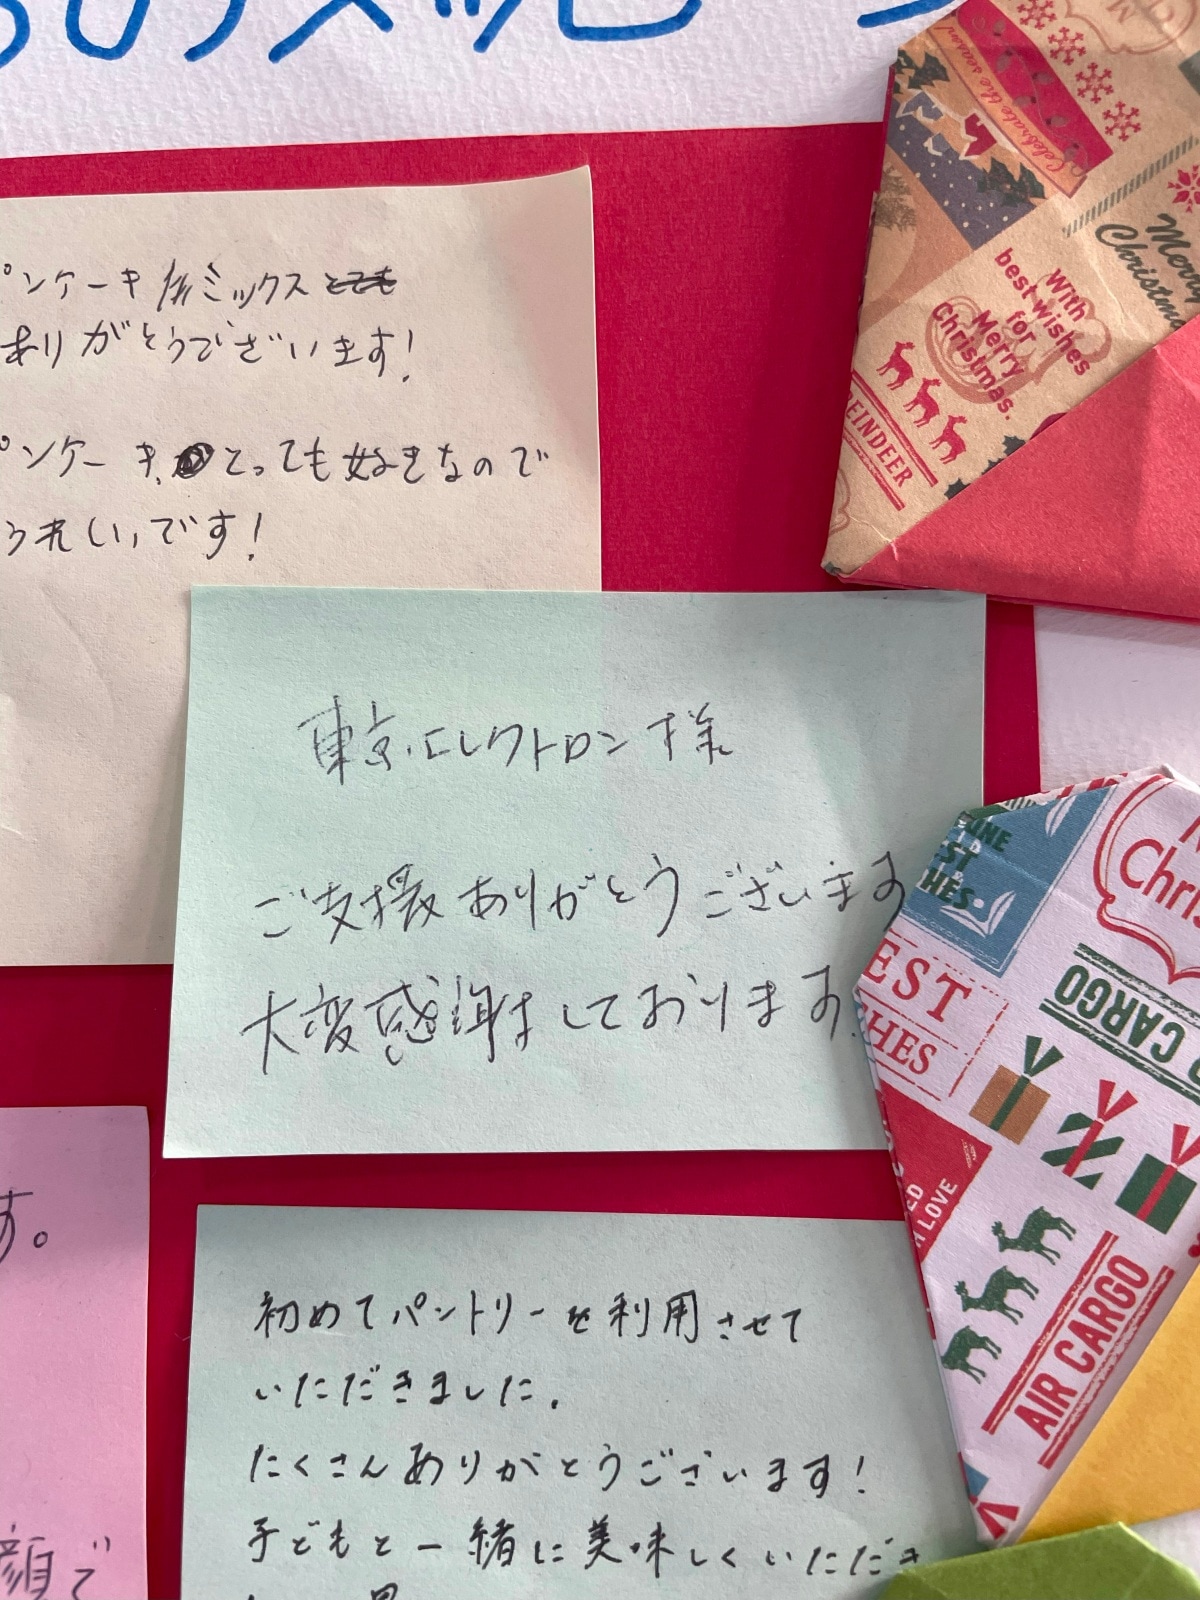 のメッセー
パンケーキミックス
ありがとうございます!
パンケーキ とっても好きなので
うれしいです!
東京エレクトロン様
ご支援ありがとうございます
大変感謝しております.
す。
顔で
初めてパントリーを利用させて
いただきました.
たくさんありがとうございます!
子どもと一緒に美味しくいただき
Celebrate the season
Merry
Christmas
With
best wishes
for
Merry
Christmas.
REINDEER
EST
HES.
Chris
CARGO
EST
HES
LOVE
AIR CARGO